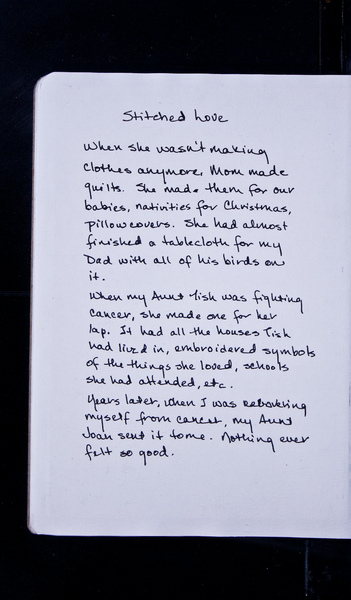 Stitched Love
When she wasn't making
clothes anymore, Mom made
quilts. She made them for our
babies, nativities for Christmas,
pillowcovers. She had almost
finished a tablecloth for my
Dad with all of his birds on
it.
When my Aunt Tish was fighting
cancer, she made one for her
lap. It had all the houses Tish
had lived in, embroidered symbols
of the things she loved, schools
she had attended, etc.
Years later, when I was recovering
myself from cancer, my Aunt
Joan sent it to me. Nothing ever
felt so good.